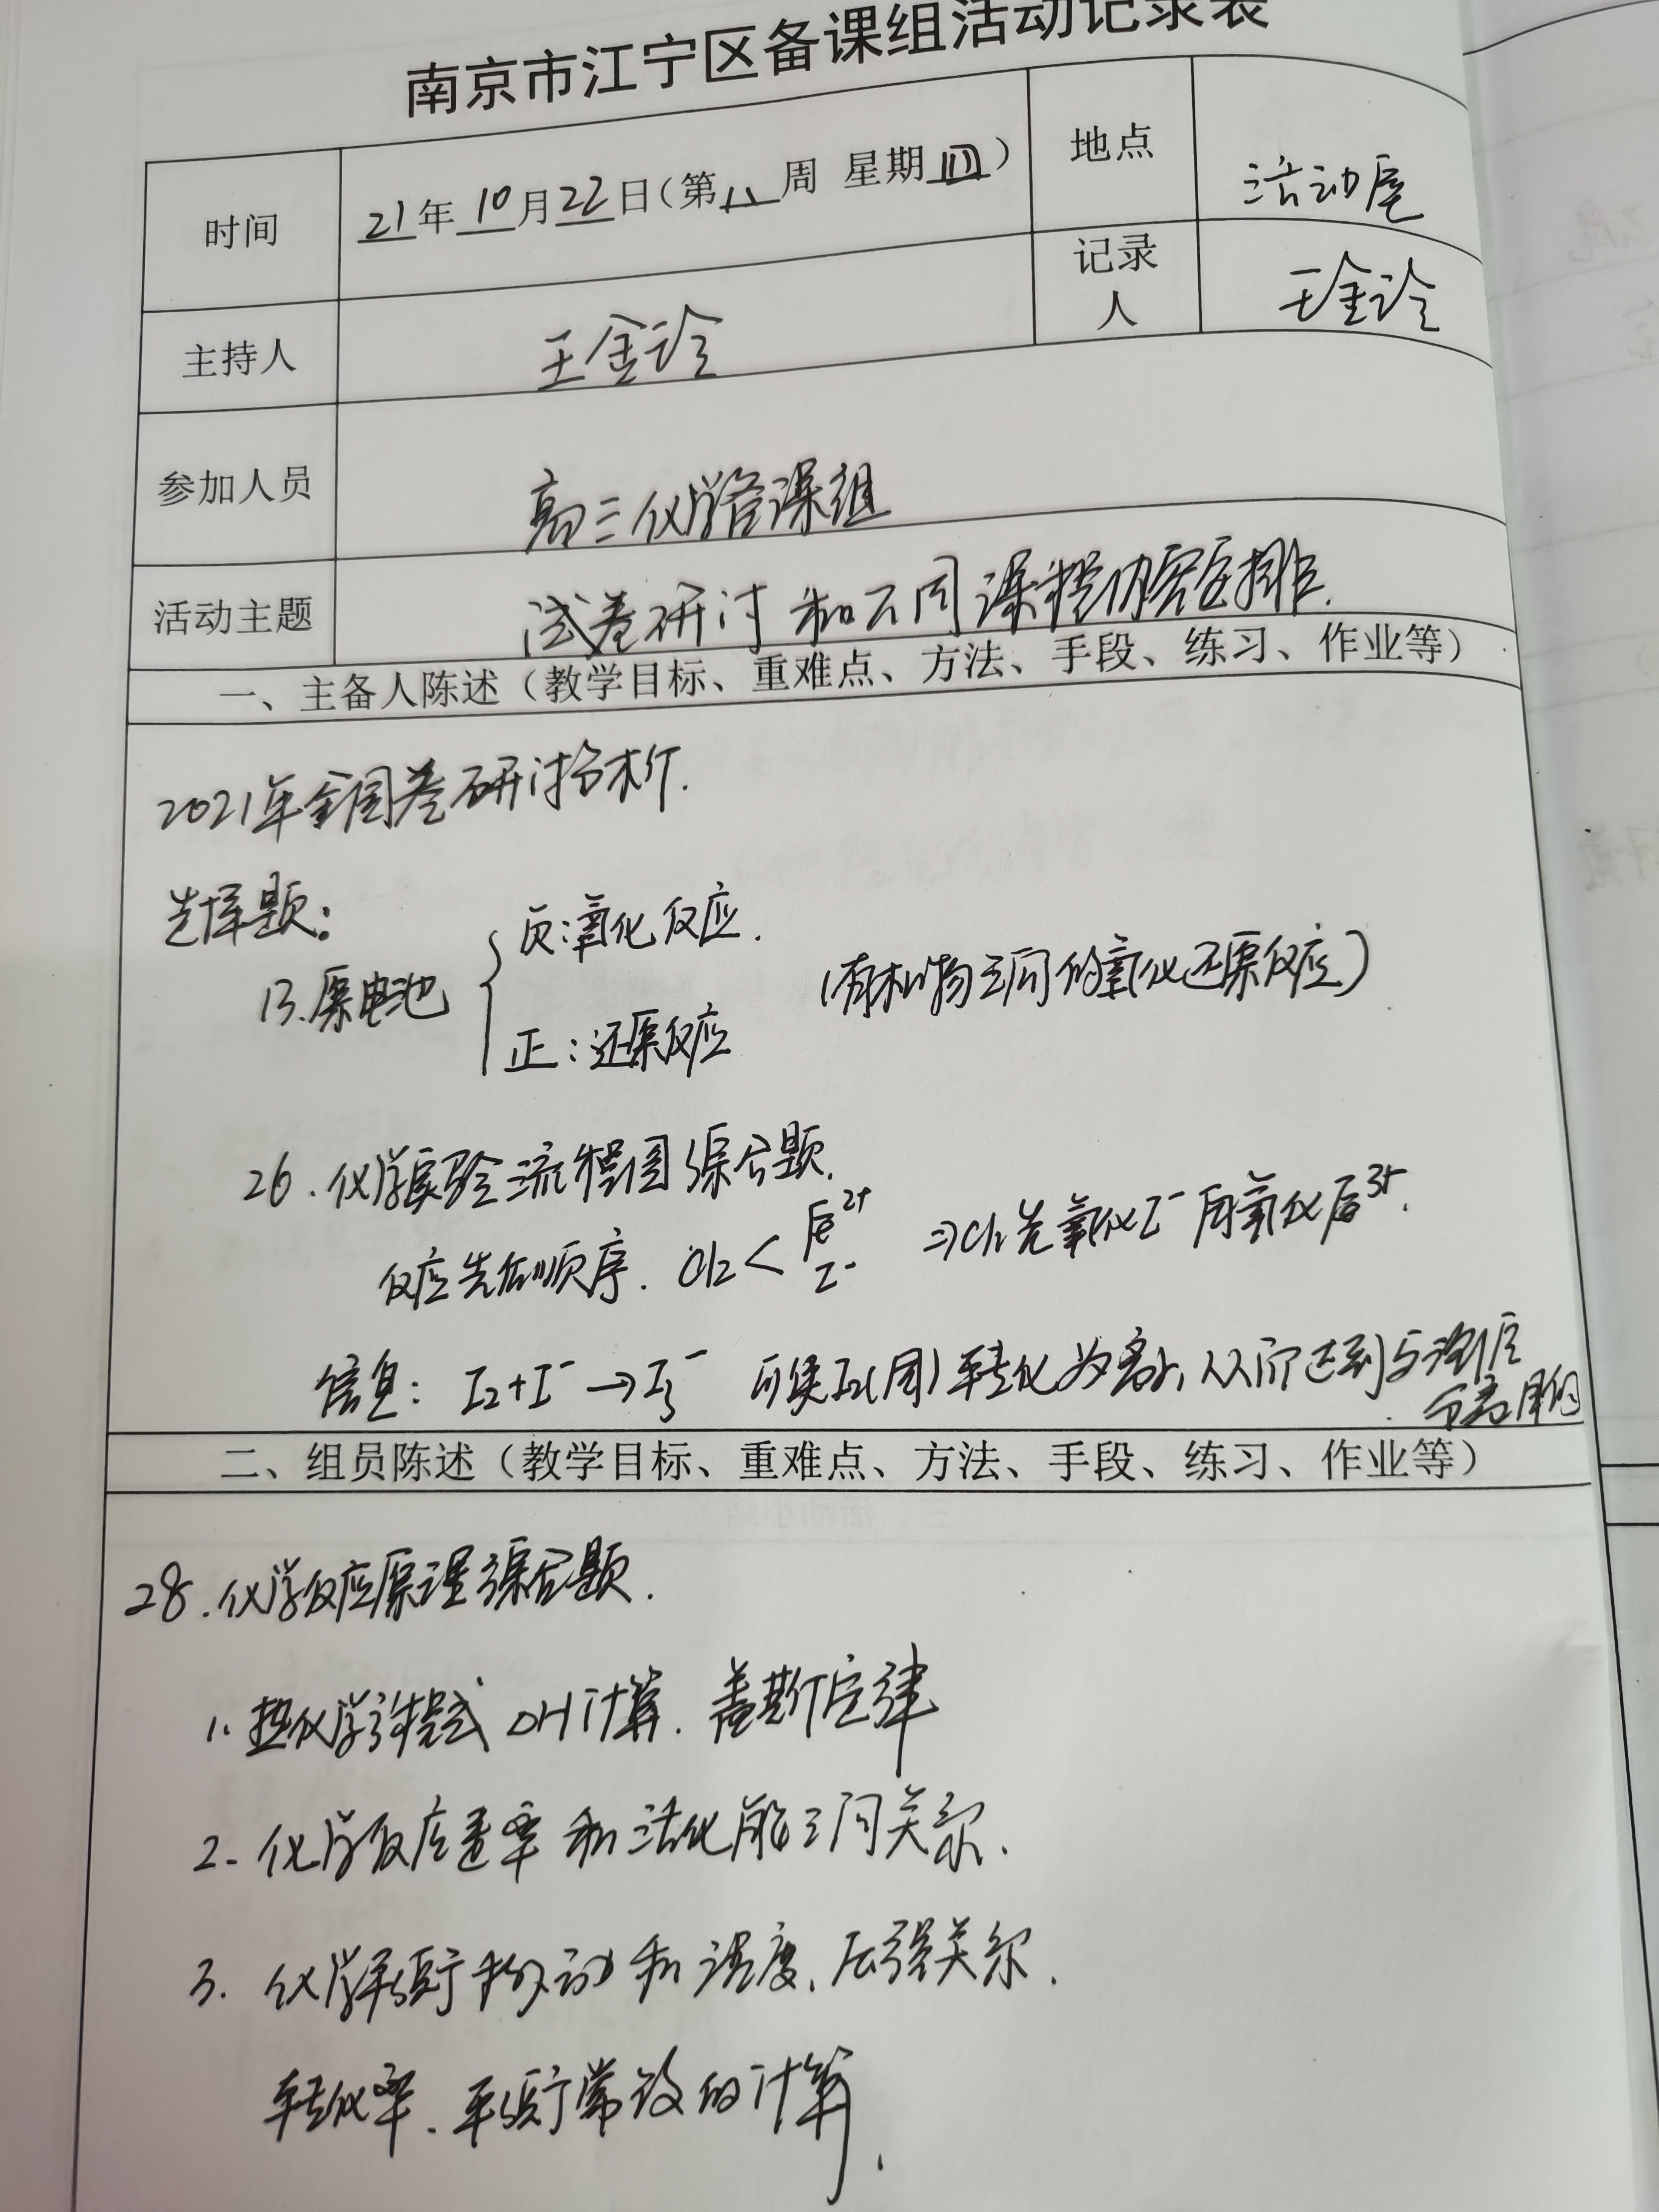 南京市江宁区备课组活动记录表
时间 21年10月22日(第八周 星期四) 地点 活动后
主持人 王金玲 记录人 王金玲
参加人员 高三化学备课组
活动主题 试卷研讨和不同课程内容安排.
一、主备人陈述(教学目标、重难点、方法、手段、练习、作业等)
2021年全国卷研讨分析.
选择题:
13.原电池 { 负:氧化反应.
正:还原反应 (有机物之间的氧化还原反应)
26.化学实验流程图综合题.
反应先后顺序. Cl₂< Fe²⁺ I⁻ ⇒Cl₂先氧化I⁻ 再氧化Fe³⁺.
信息: I₂+I⁻→I₃⁻ 可使I₂(固)转化为, 从而达到与
分离目的
二、组员陈述(教学目标、重难点、方法、手段、练习、作业等)
28.化学反应原理综合题.
1.热化学方程式 △H计算. 盖斯定律
2.化学反应速率和活化能之间关系.
3.化学平衡移动和温度、压强关系.
转化率、平衡常数的计算.